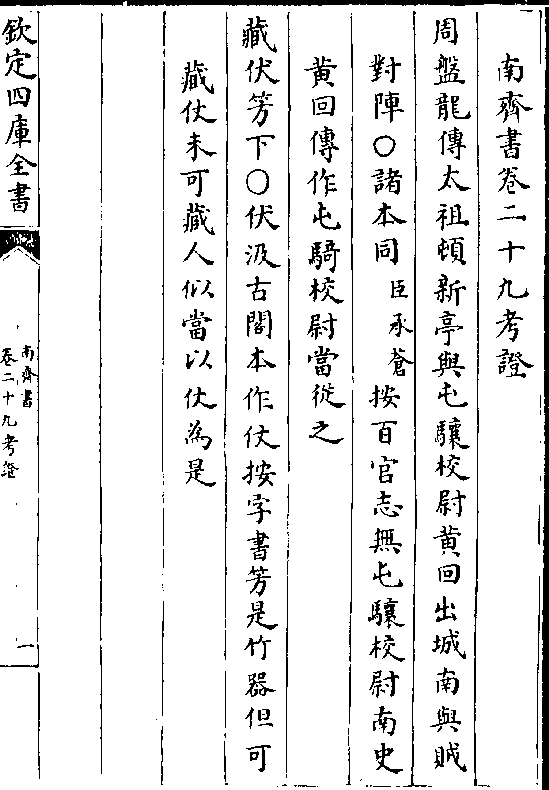 南齊書卷二十九考證
周盤龍傳太祖頓新亭與屯驤校尉黄回出城南與賊
對陣○諸本同臣承蒼按百官志無屯驤校尉南史
黄回傳作屯騎校尉當從之
藏伏笐下○伏汲古閣本作仗按字書笐是竹器但可
藏仗未可藏人似當以仗為是
欽定四庫全書
南齊書
卷二十九考證
一